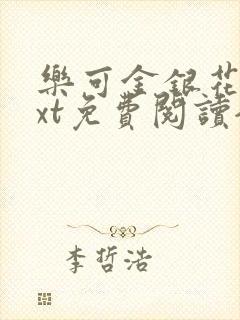 樂可金銀花
xt免費閱讀
李哲浩